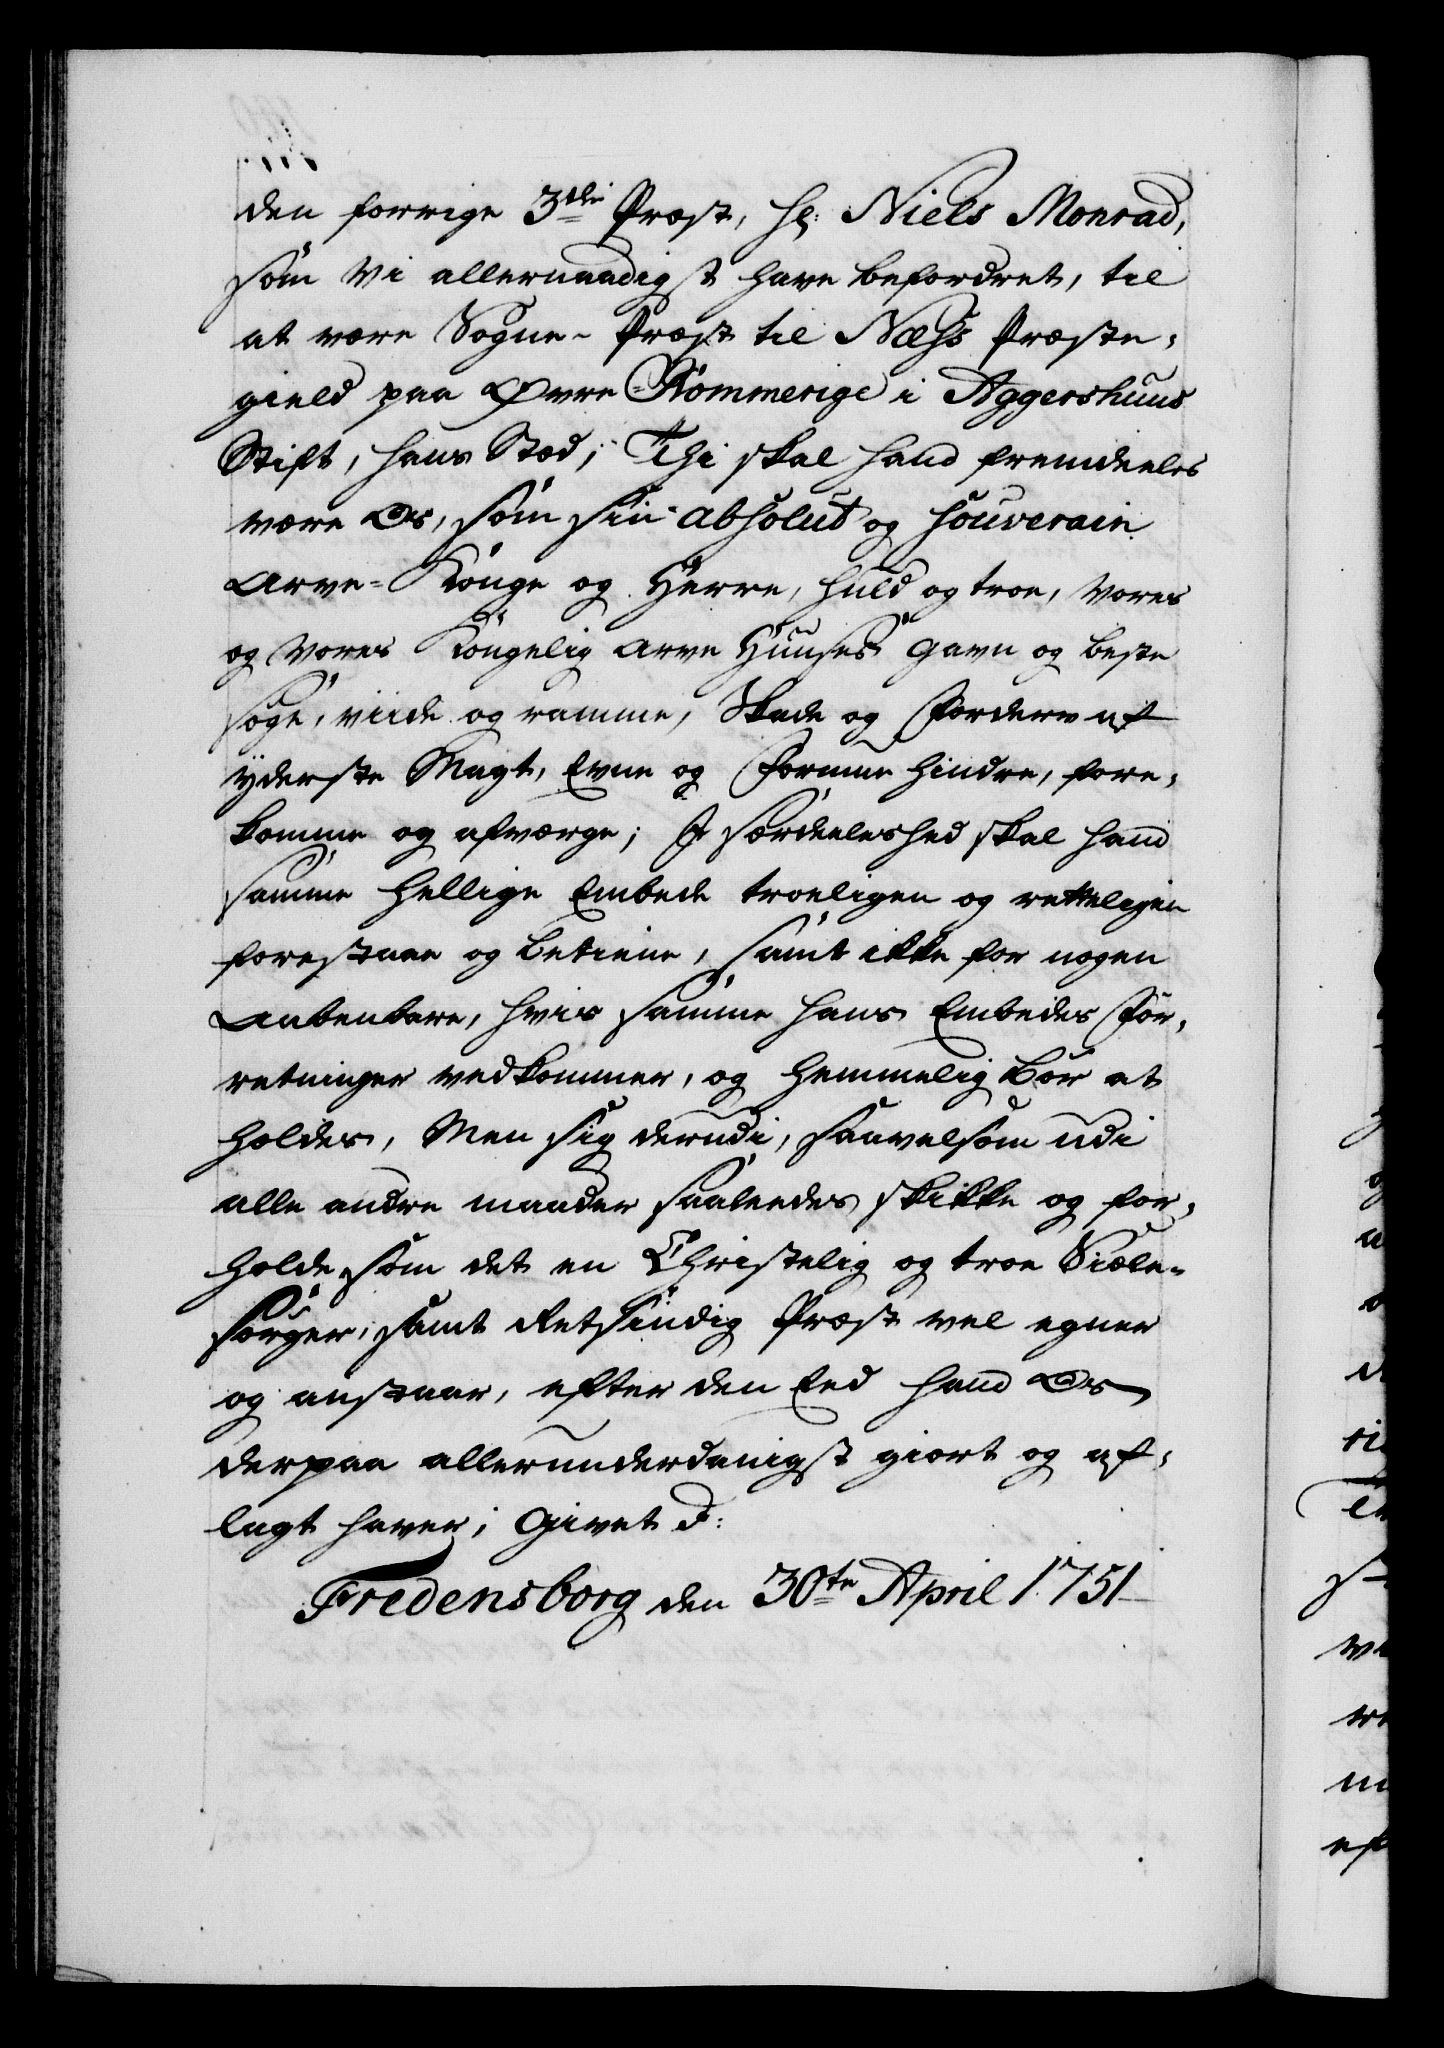 den forrige 3die Præst, Hr: Niels Monrad,
som Vi allernaadigst have befordret, til
at være Sogne-Præst til Næss Præste-
gield paa Øvre-Rommerige i Aggershuus
Stift, hans Stæd; Thi skal hand fremdeeles
være Os, som sin absolut og souverain
Arve-Konge og Herre, huld og troe, Vores
og Vores Kongelig Arve Huuses Gavn og beste
søge, viide og ramme, Skade og Forderv af
yderste Magt, Evne og Formue hindre, fore-
komme og afværge; J særdeeleshed skal hand
samme hellige Embede troeligen og retteligen
forestaae og betiene, samt ikke for nogen
aabenbare, hvis samme hans Embedes For-
retninger vedkommer, og hemmelig bør at
holdes, Men sig derudi, saavelsom udi
alle andre maader saaleedes skikke og for-
holde, som det en Christelig og troe Siæle-
sørger, samt Retsindig Præst vel egner
og anstaar, efter den Eed hand Os
derpaa allerunderdanigst giort og af-
lagt haver; Givet d:
Fredensborg den 30te April 1751